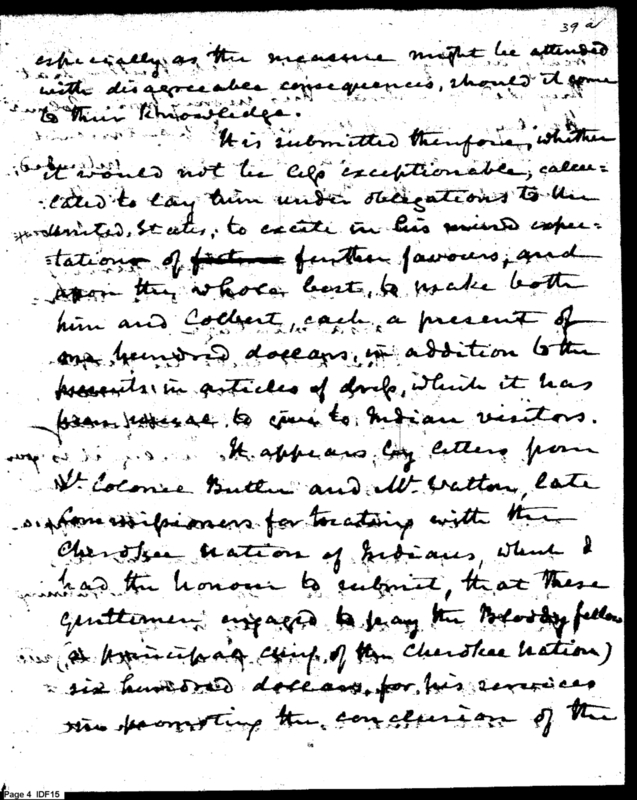 39 a
especially as the measure might be attended
with disagreeable consequences, should it come
to their knowledge.
It is submitted therefore, whether
it would not be less exceptionable, calcu=
=lated to lay him under obligations to the
United States, to excite in his mind expec=
=tations of further favours, and
upon the whole best, to make both
him and Colbert, each, a present of
one hundred dollars, in addition to the
presents in articles of dress, which it has
been usual to give to Indian visitors.
It appears by letters from
Lt. Colonel Butler and Mr. Walton, late
Commissioners for treating with the
Cherokee Nation of Indians, which I
had the honour to submit, that these
gentlemen engaged to pay the Bloody fellow
(a principal chief of the Cherokee Nation)
six hundred dollars, for his services
in promoting the conclusion of the
Page 4 IDF15